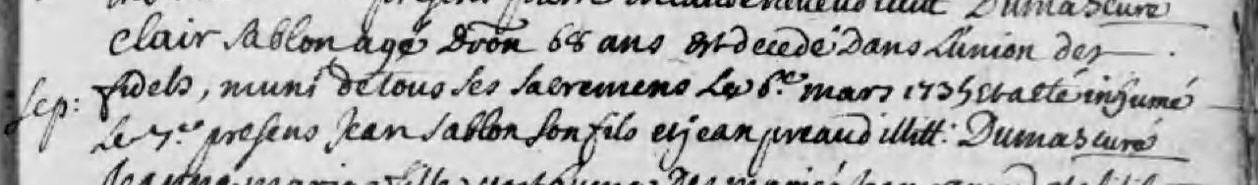 present Dumas curé
clair sablon agé dvōn 68 ans est decedé dans L'union des
sep: fidels, muni de tous ses sacremens Le 6.e mars 1735 et a eté inhumé
Le 7.e presens Jean sablon son fils et jean preaud illitt: Dumas curé
Jeanne marie fille